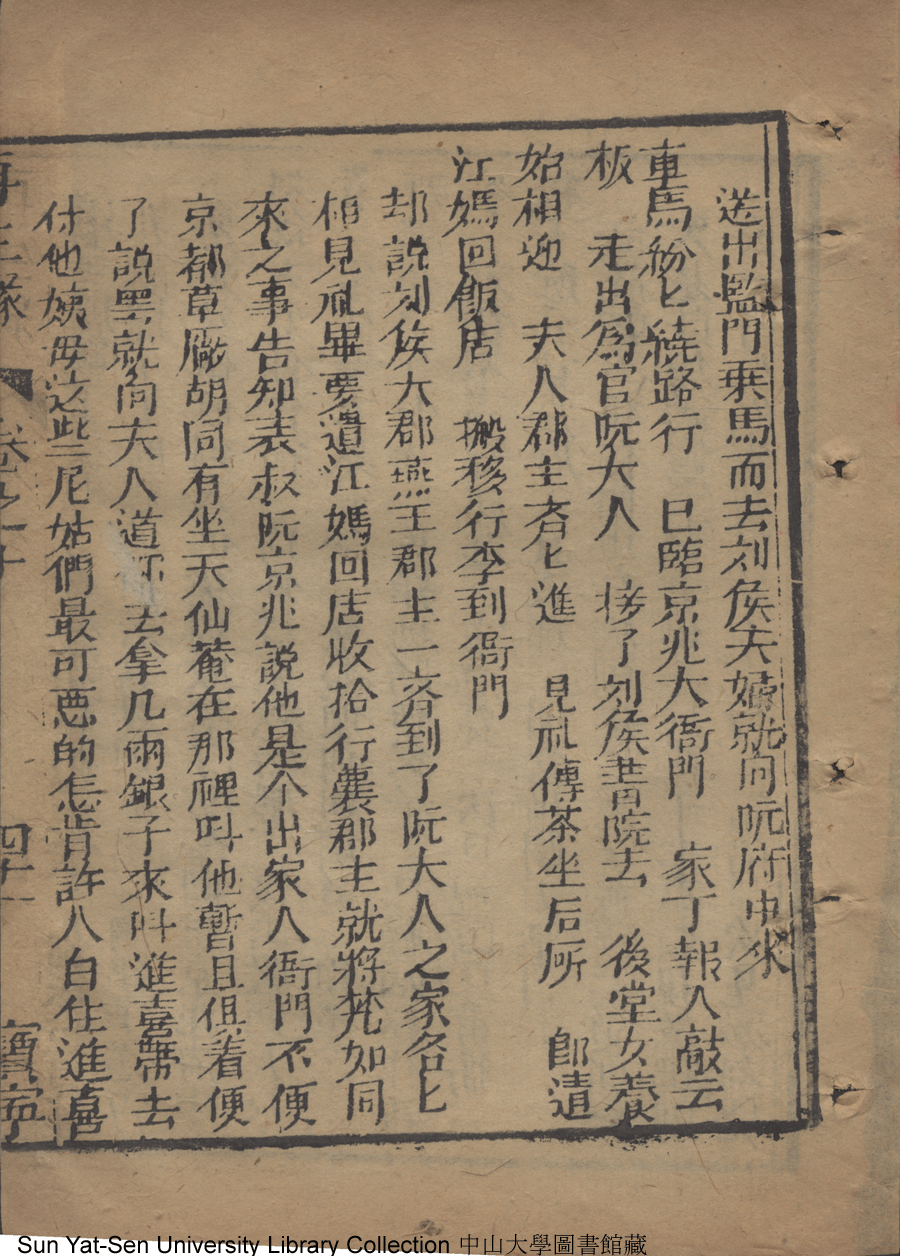 送出監門乘馬而去刘侯夫婦就向阮府中來
車馬紛匕繞路行　巳臨京兆大衙門　家丁報入敲云
板　走出爲官阮大人　接了刘侯書院去　後堂女養
始相迎　夫人郡主斉匕進　見礼傳茶坐后所　郎遣
江媽回飯店　搬移行李到衙門
却説刘侯大郡燕王郡主一斉到了阮大人之家各匕
相見礼畢要遺江媽回店收拾行囊郡主就將梵如同
來之事告知表叔阮京兆說他是个出家人衙門不便
京都草廠胡同有坐天仙菴在那裡叫他暫且俱着便
了說罢就向夫人道你去拿几兩銀子來叫進喜帶去
付他姨母这些尼姑們最可悪的怎肯許人白住進喜
再生縁　卷之十　四十　寳寧
Sun Yat-Sen University Library Collection 中山大學圖書館藏